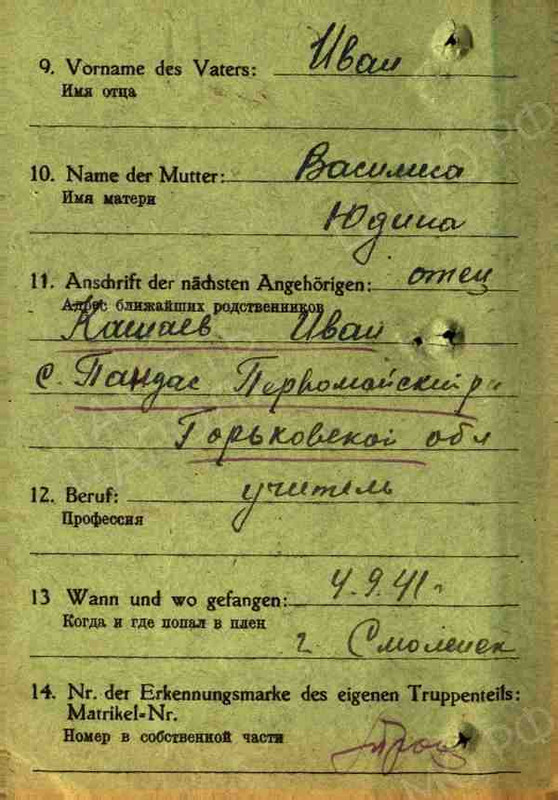 Иван
9. Vorname des Vaters:
Имя отца
10. Name der Mutter: Василиса
Имя матери
Юдина
11. Anschrift der nächsten Angehörigen: отец
Адрес ближайших родственников
Кашаев Иван
с. Пандас Первомайский р
Горьковской обл
12. Beruf: учитель
Профессия
13 Wann und wo gefangen: 4.9.41г
Когда и где попал в плен
г. Смоленск
14. Nr. der Erkennungsmarke des eigenen Truppenteils:
Matrikel-Nr.
Номер в собственной части